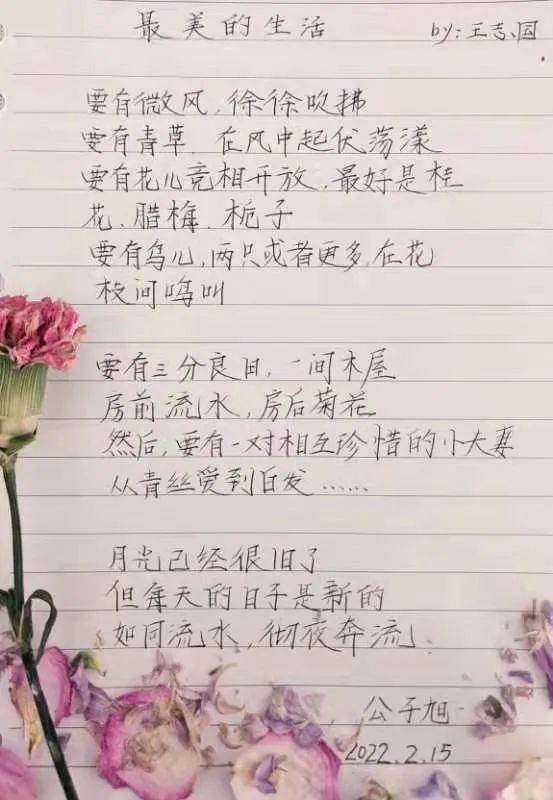 最美的生活 by:王志国
要有微风,徐徐吹拂
要有青草.在风中起伏荡漾
要有花儿竞相开放,最好是桂
花.腊梅.栀子
要有鸟儿,两只或者更多.在花
枝间鸣叫
要有三分良田,一间木屋
房前流水,房后菊花
然后,要有一对相互珍惜的小夫妻
从青丝爱到白发......
月光已经很旧了
但每天的日子是新的
如同流水,彻夜奔流.
公子旭
2022.2.15